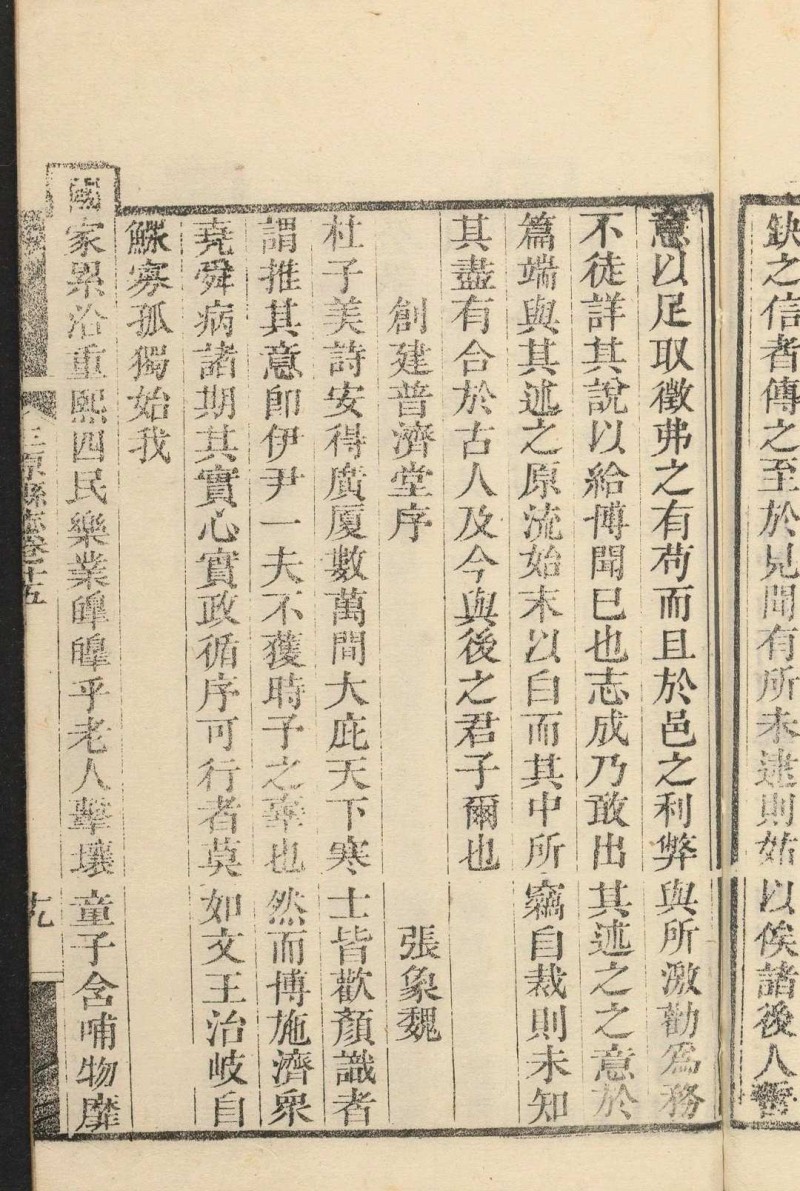 缺之信者傳之至於見聞有所未逮則姑以俟諸後人
意以足取徵弗之有苟而且於邑之利弊與所激勸為務
不徒詳其說以給博聞已也志成乃敢出其述之之意於
篇端與其述之原流始末以自而其中所竊自裁則未知
其盡有合於古人及今與後之君子爾也
創建普濟堂序 張象魏
杜子美詩安得廣厦數萬間大庇天下寒士皆歡顏識者
謂推其意即伊尹一夫不獲時予之辜也然而博施濟眾
堯舜病諸期其實心實政循序可行者莫如文王治岐自
鰥寡孤獨始我
國家累洽重熙四民樂業皥皥乎老人擊壤童子含哺物靡
三原縣志卷十五 十九